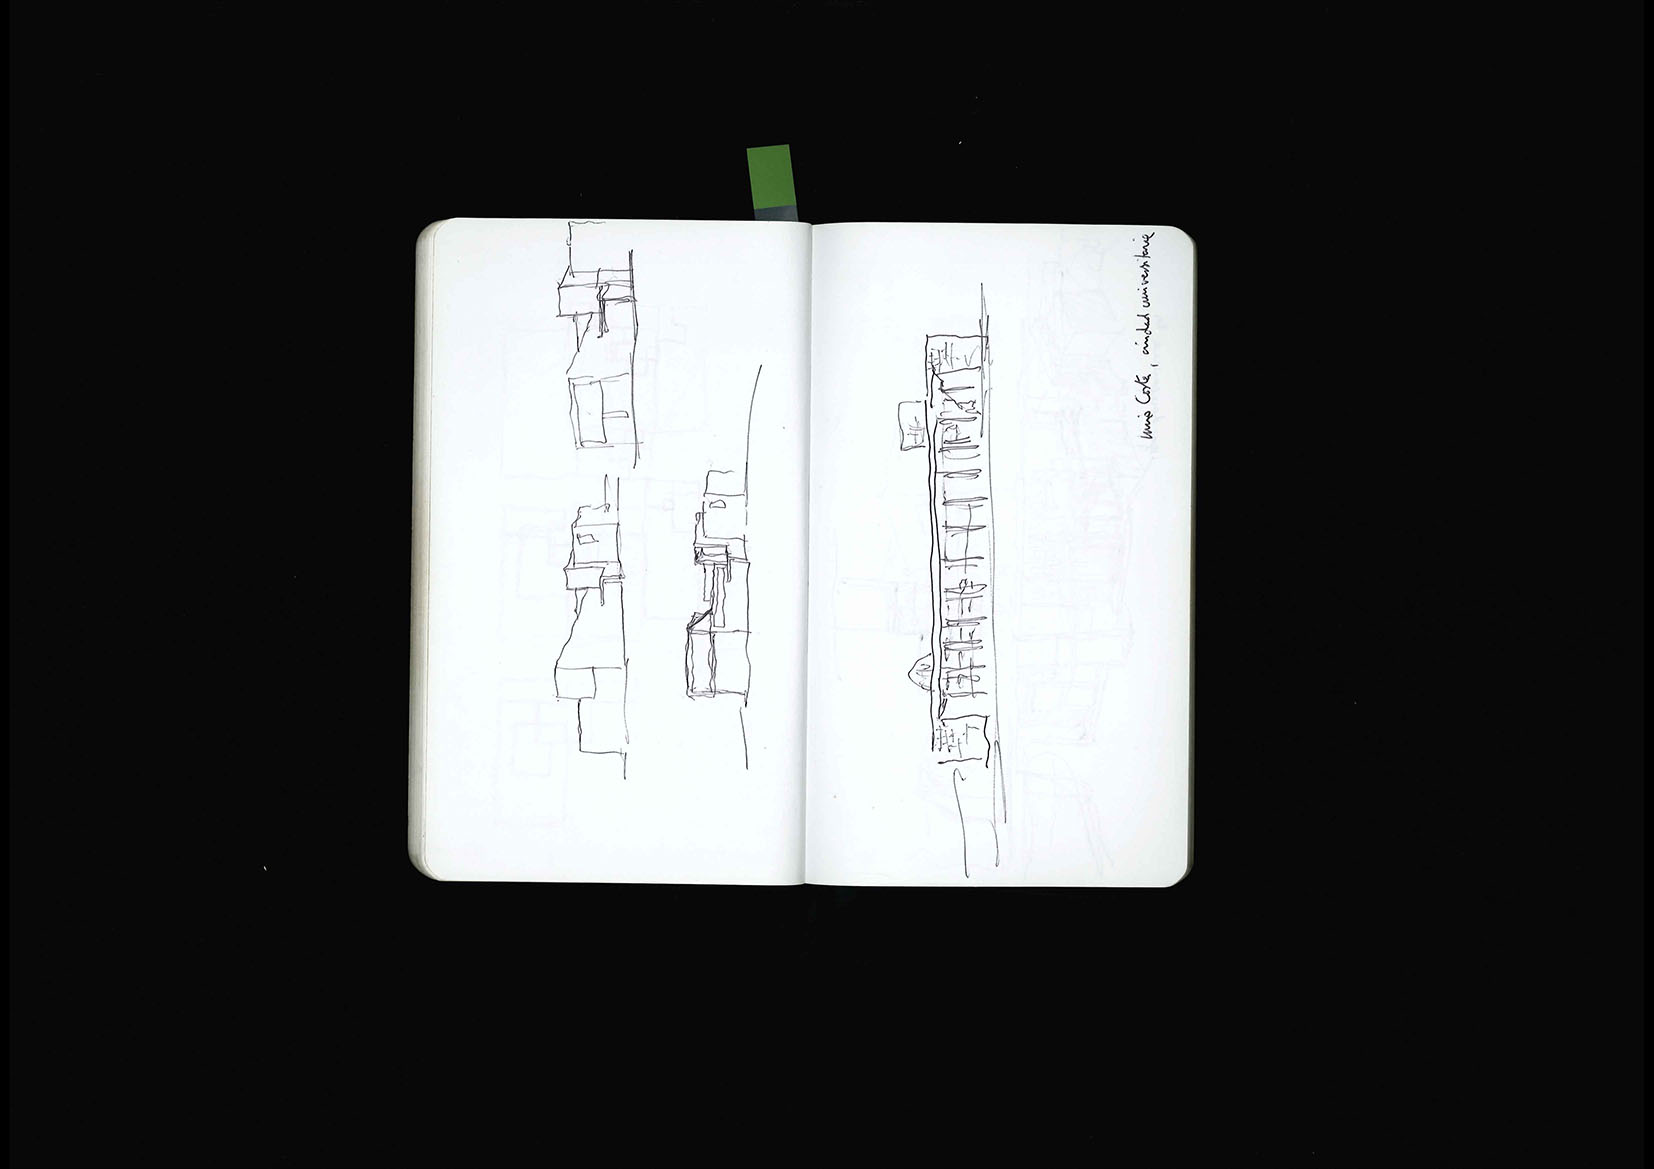 Lucio Costa, ciudad universitaria